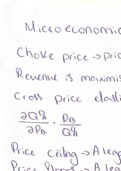 Microeconomic
Choke price → pric
Revenue is maximis
Cross price elasti
∂Qᴬ/∂Pᴮ · Pᴮ/Qᴬ
Price ceiling → A leg